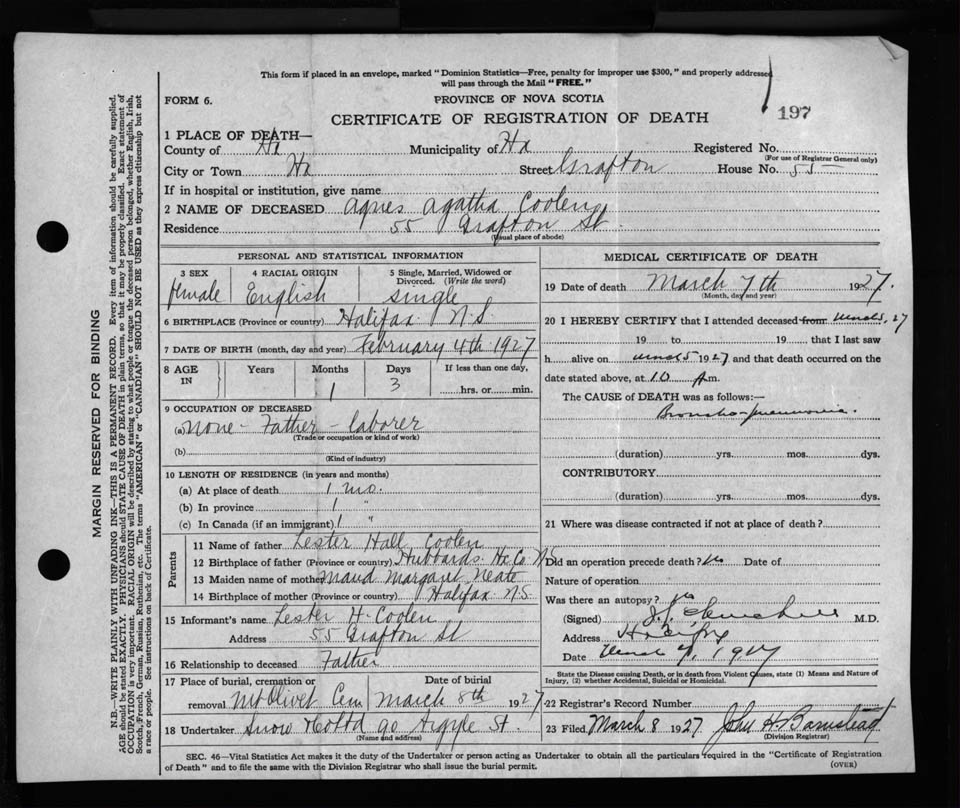 This form if placed in an envelope, marked "Dominion Statistics—Free, penalty for improper use $300," and properly addressed
will pass through the Mail "FREE."
FORM 6.
PROVINCE OF NOVA SCOTIA
197
CERTIFICATE OF REGISTRATION OF DEATH
1 PLACE OF DEATH—
County of Hx Municipality of Hx Registered No.
(For use of Registrar General only)
City or Town Hx Street Grafton House No. 55
If in hospital or institution, give name
2 NAME OF DECEASED Agnes Agatha Coolen
Residence 55 Grafton St.
(Usual place of abode)
PERSONAL AND STATISTICAL INFORMATION
3 SEX 4 RACIAL ORIGIN 5 Single, Married, Widowed or
Divorced. (Write the word)
female English single
6 BIRTHPLACE (Province or country) Halifax N.S.
7 DATE OF BIRTH (month, day and year) February 4th 1927
8 AGE IN Years Months Days If less than one day,
1 3 hrs. or min.
9 OCCUPATION OF DECEASED
(a) None - Father - laborer
(Trade or occupation or kind of work)
(b)
(Kind of industry)
10 LENGTH OF RESIDENCE (in years and months)
(a) At place of death 1 mo.
(b) In province 1 "
(c) In Canada (if an immigrant) 1 "
Parents
11 Name of father Lester Hall Coolen
12 Birthplace of father (Province or country) Hubbards Hx Co N.S.
13 Maiden name of mother Maud Margaret Neate
14 Birthplace of mother (Province or country) Halifax N.S.
15 Informant's name Lester H. Coolen
Address 55 Grafton St
16 Relationship to deceased Father
17 Place of burial, cremation or Date of burial
removal Mt Olivet Cem March 8th 1927
18 Undertaker Snow 90 Argyle St.
(Name and address)
MEDICAL CERTIFICATE OF DEATH
19 Date of death March 7th 1927.
(Month, day and year)
20 I HEREBY CERTIFY that I attended deceased from March 5, 27
19 to 19 that I last saw
h alive on March 5 1927 and that death occurred on the
date stated above, at 10 A m.
The CAUSE of DEATH was as follows:—
Broncho-pneumonia.
(duration) yrs. mos. dys.
CONTRIBUTORY.
(duration) yrs. mos. dys.
21 Where was disease contracted if not at place of death?
Did an operation precede death? No Date of
Nature of operation
Was there an autopsy?
(Signed) M.D.
Address Halifax
Date March 7, 1927
State the Disease causing Death, or in death from Violent Causes, state (1) Means and Nature of
Injury, (2) whether Accidental, Suicidal or Homicidal.
22 Registrar's Record Number
23 Filed March 8 1927 John H. Barnstead
(Division Registrar)
SEC. 46—Vital Statistics Act makes it the duty of the Undertaker or person acting as Undertaker to obtain all the particulars required in the "Certificate of Registration
of Death" and to file the same with the Division Registrar who shall issue the burial permit.
(OVER)
MARGIN RESERVED FOR BINDING
N.B.—WRITE PLAINLY WITH UNFADING INK—THIS IS A PERMANENT RECORD. Every item of information should be carefully supplied.
AGE should be stated EXACTLY. PHYSICIANS should STATE CAUSE OF DEATH in plain terms, so that it may be properly classified. Exact statement of
OCCUPATION is very important. RACIAL ORIGIN will be described by stating to what people or tongue the deceased person belonged, whether English, Irish,
Scotch, French, German, Russian, Ruthenian, etc. The terms "AMERICAN" or "CANADIAN" SHOULD NOT BE USED as they express citizenship but not
a race or people. See instructions on back of Certificate.